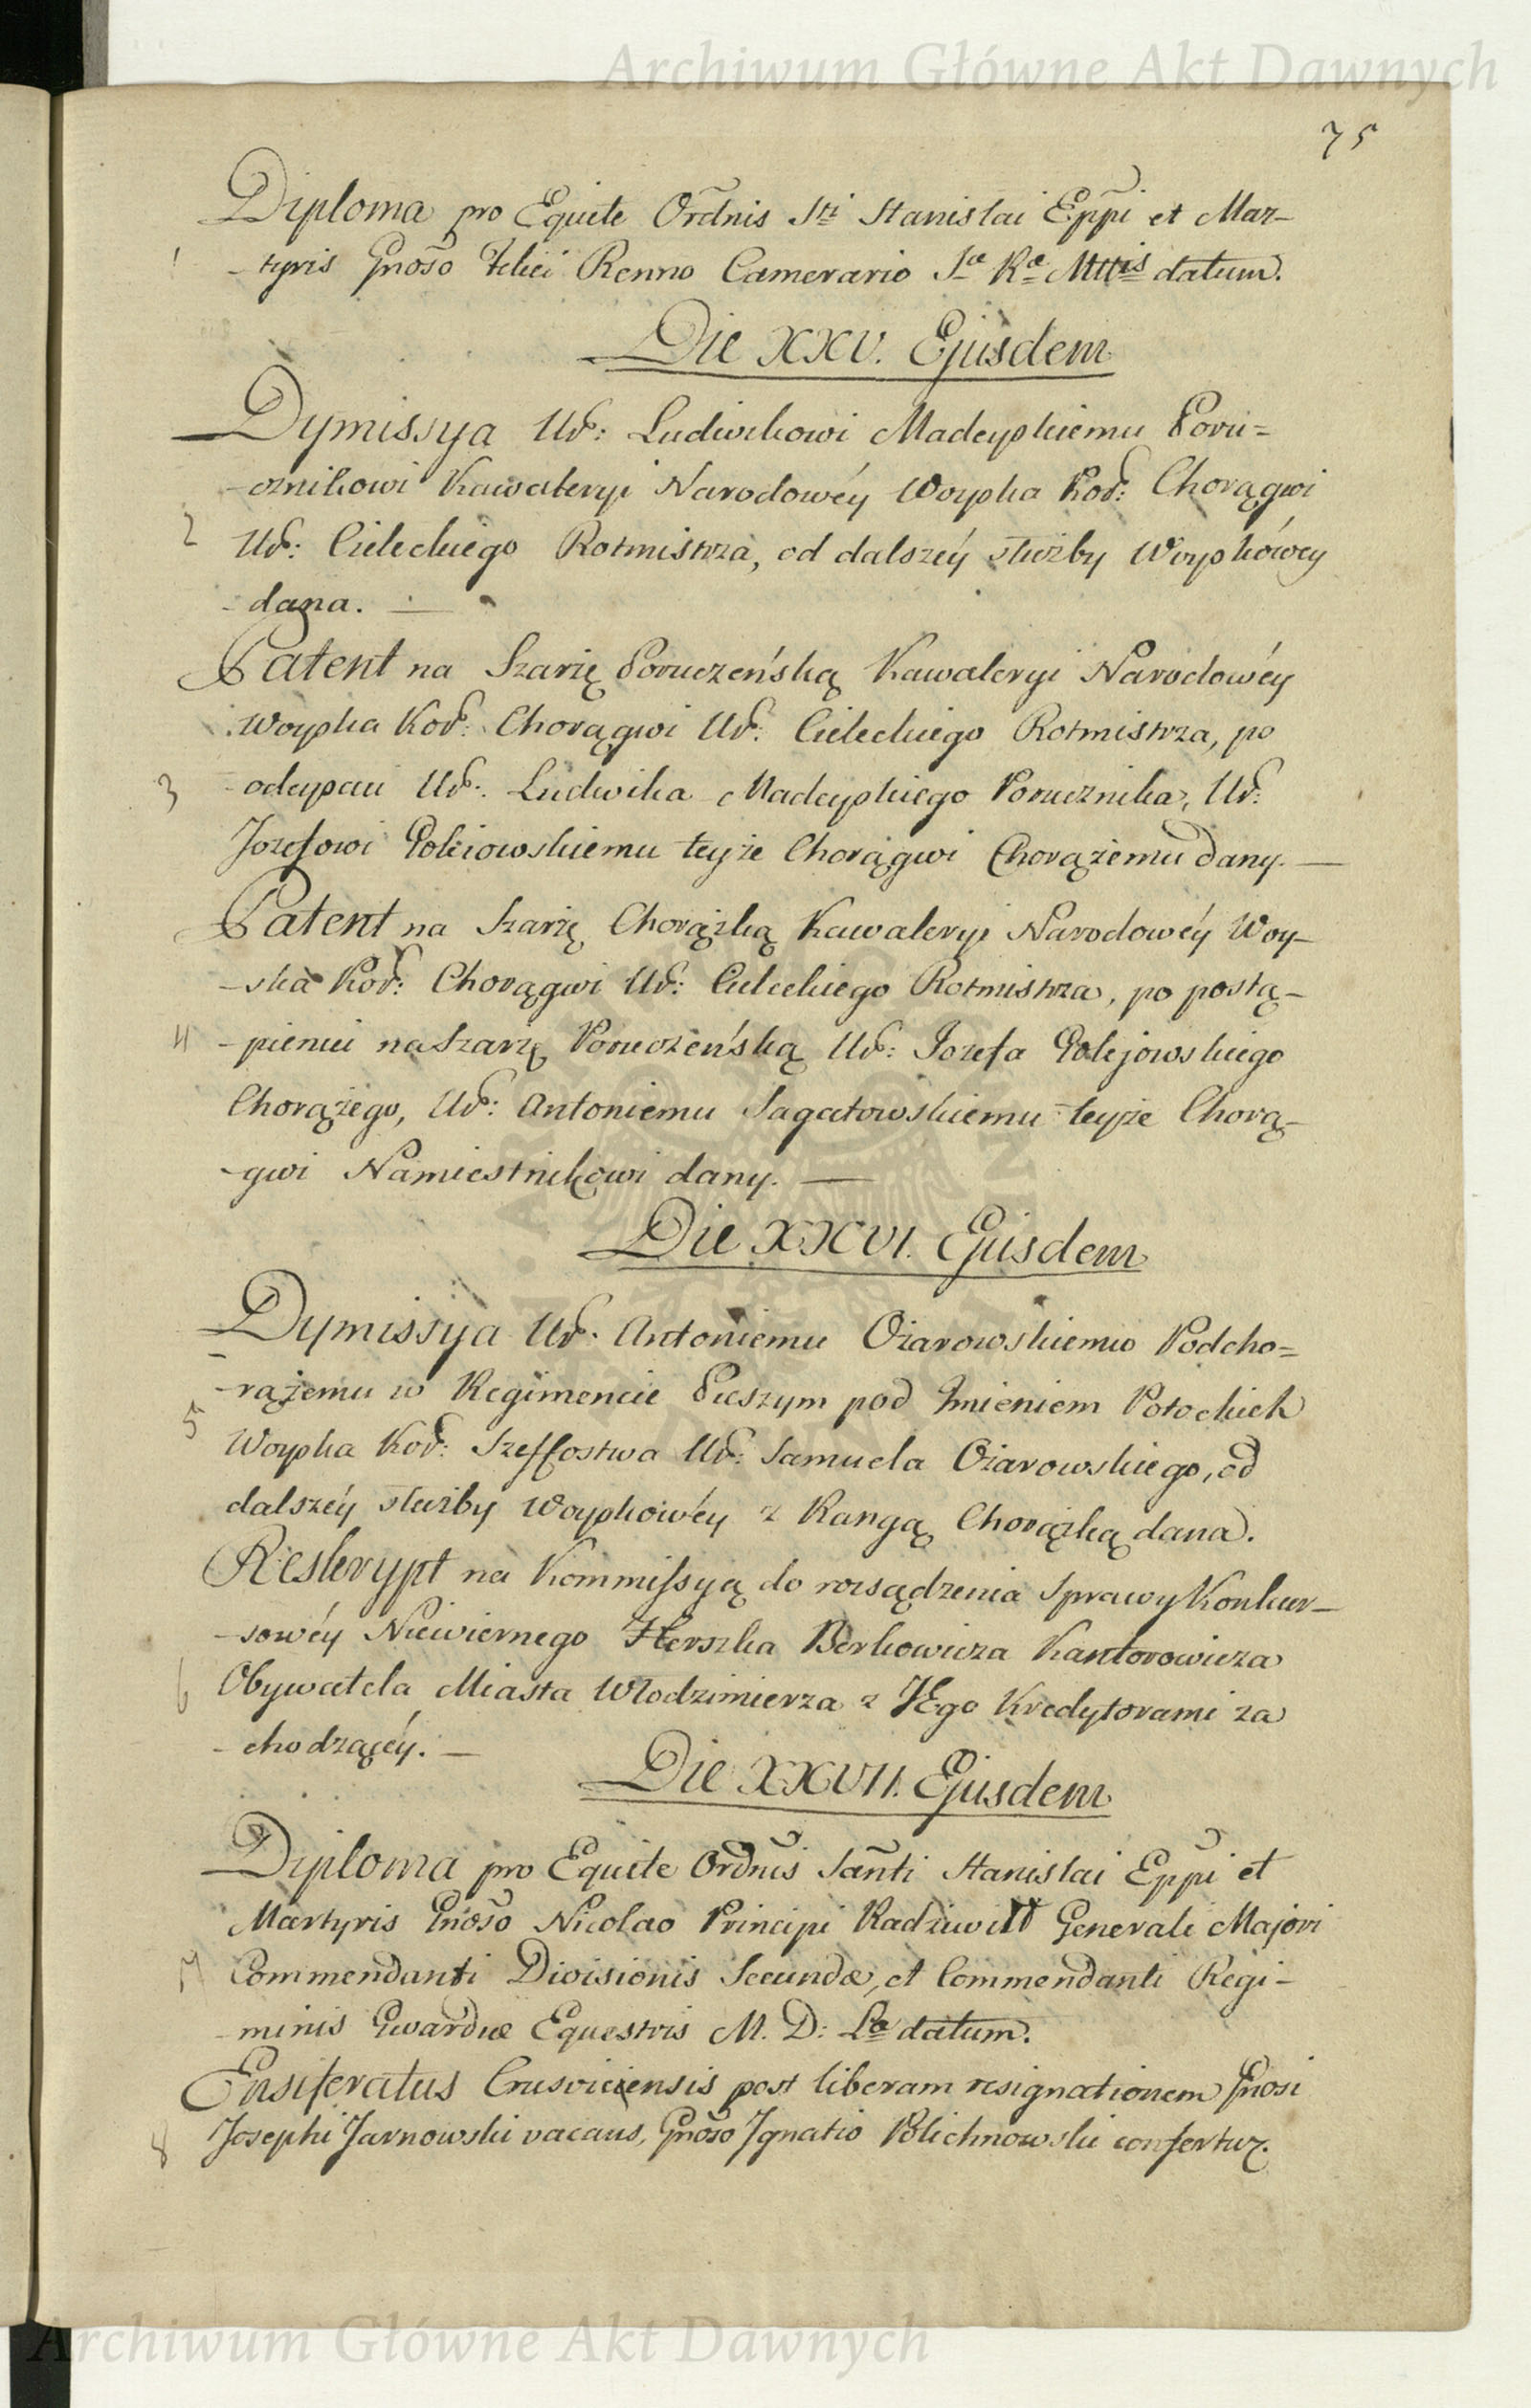 Archiwum Główne Akt Dawnych
75
Diploma pro Equite Ordnis Sti Stanislai Eppi et Mar-
1 -tyris Gnoso Felici Renno Camerario Sæ Ræ Mttis datum.
Die XXV. Ejusdem
Dymissya Ur: Ludwikowi Madeyskiemu Poru=
-cznikowi Kawaleryi Narodowéy Woyska Kor: Chorągwi
2 Ur: Cieleckiego Rotmistrza, od dalszéy służby Woyskówey
-dana. —
Patent na Szarżę Poruczeńską Kawaleryi Narodowéy
Woyska Kor: Chorągwi Ur: Cieleckiego Rotmistrza, po
3 odeyściu Ur: Ludwika Madeyskiego Porucznika, Ur:
Jozefowi Golejowskiemu teyże Chorągwi Chorążemu dany. —
Patent na Szarżę Chorązką Kawaleryi Narodowéy Woy-
-ska Kor: Chorągwi Ur: Cieleckiego Rotmistrza, po postą-
4 -pieniu na Szarżę Poruczeńską Ur: Jozefa Golejowskiego
Chorążego, Ur: Antoniemu Sagatowskiemu teyże Chorą-
-gwi Namiestnikowi dany. —
Die XXVI. Ejusdem
Dymissya Ur: Antoniemu Ożarowskiemu Podcho=
-rążemu w Regimencie Pieszym pod Imieniem Potockich
5 Woyska Kor: Szeffostwa Ur: Samuela Ożarowskiego, od
dalszéy służby Woyskowéy z Rangą Chorązką dana.
Reskrypt na Kommissyą do rozsądzenia Sprawy Konkur-
-sowéy Niewiernego Herszka Berkowicza Kantorowicza
6 Obywatela Miasta Włodzimierza z JEgo Kredytorami za
-chodzącéy. —
Die XXVII. Ejusdem
Diploma pro Equite Ordnis Santi Stanislai Eppi et
Martyris Gnoso Nicolao Principi Radziwiłł Generali Majori
7 Commendanti Divisionis Secundæ, et Commendanti Regi-
-minis Gwardiæ Equestris M. D: Læ datum.
Ensiferatus Crusviciensis post liberam resignationem Gnosi
8 Josephi Jarnowski vacans, Gnoso Ignatio Polichnowski confertur.
Archiwum Główne Akt Dawnych